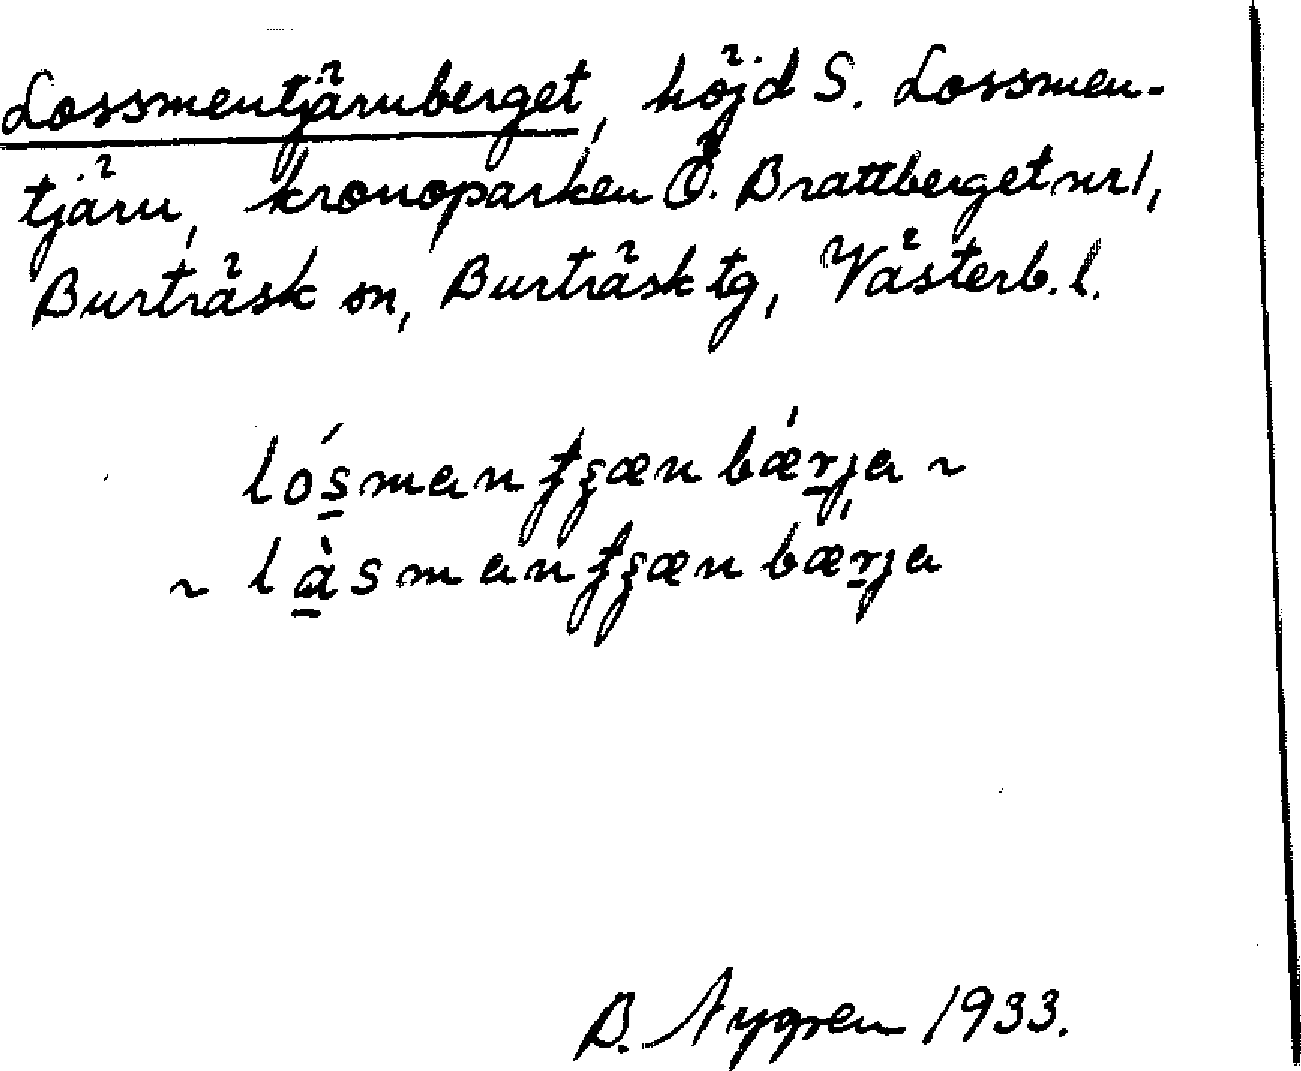 Lossmentjärnberget, höjd S. Lossmen-
tjärn, kronoparken Ö. Brattberget nr 1,
Burträsk sn, Burträsk tg, Västerb. l.
B. Nygren 1933.